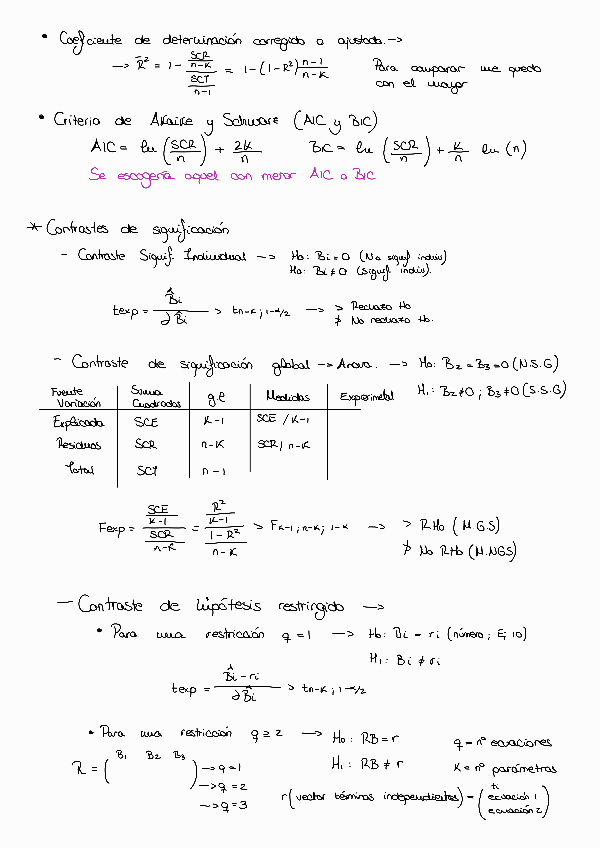 • Coeficiente de determinación corregido o ajustado →
→ R̄² = 1 - (SCR/n-K)/(SCT/n-1) = 1-(1-R²) n-1/n-K Para comparar me quedo
con el mayor
• Criterio de Akaike y Schwarz (AIC y BIC)
AIC = ln (SCR/n) + 2K/n BIC = ln (SCR/n) + K/n ln (n)
Se escogería aquel con menor AIC o BIC
* Contrastes de significación
- Contraste Signif. Individual → Ho: Bi = 0 (No signif indiv)
Ho: Bi ≠ 0 (signif. indiv).
texp = B̂i/∂B̂i > tn-K; 1-α/2 → > Rechazo Ho
≯ No rechazo Ho.
- Contraste de significación global → Anova. → Ho: B2 = B3 = 0 (N.S.G)
H1: B2 ≠ 0 ; B3 ≠ 0 (S.S.G)
Fuente Variación Suma Cuadrados g.l Medidas Experimental
Explicada SCE K-1 SCE / K-1
Residuos SCR n-K SCR / n-K
Total SCT n-1
Fexp = (SCE/K-1)/(SCR/n-K) = (R²/K-1)/(1-R²/n-K) > F K-1; n-K; 1-α → > RHo (M.G.S)
≯ No RHo (M.NGS)
- Contraste de hipótesis restringido →
• Para una restricción q = 1 → Ho: Bi = ri (número; Ej 10)
H1: Bi ≠ ri
texp = B̂i - ri/∂B̂i > tn-K; 1-α/2
• Para una restricción q ≥ 2 → Ho: RB = r q = nº ecuaciones
H1: RB ≠ r K = nº parámetros
B1 B2 B3
R = ( ) → q = 1
→ q = 2
→ q = 3
r (vector términos independientes) = (ti ecuación 1
ecuación 2)